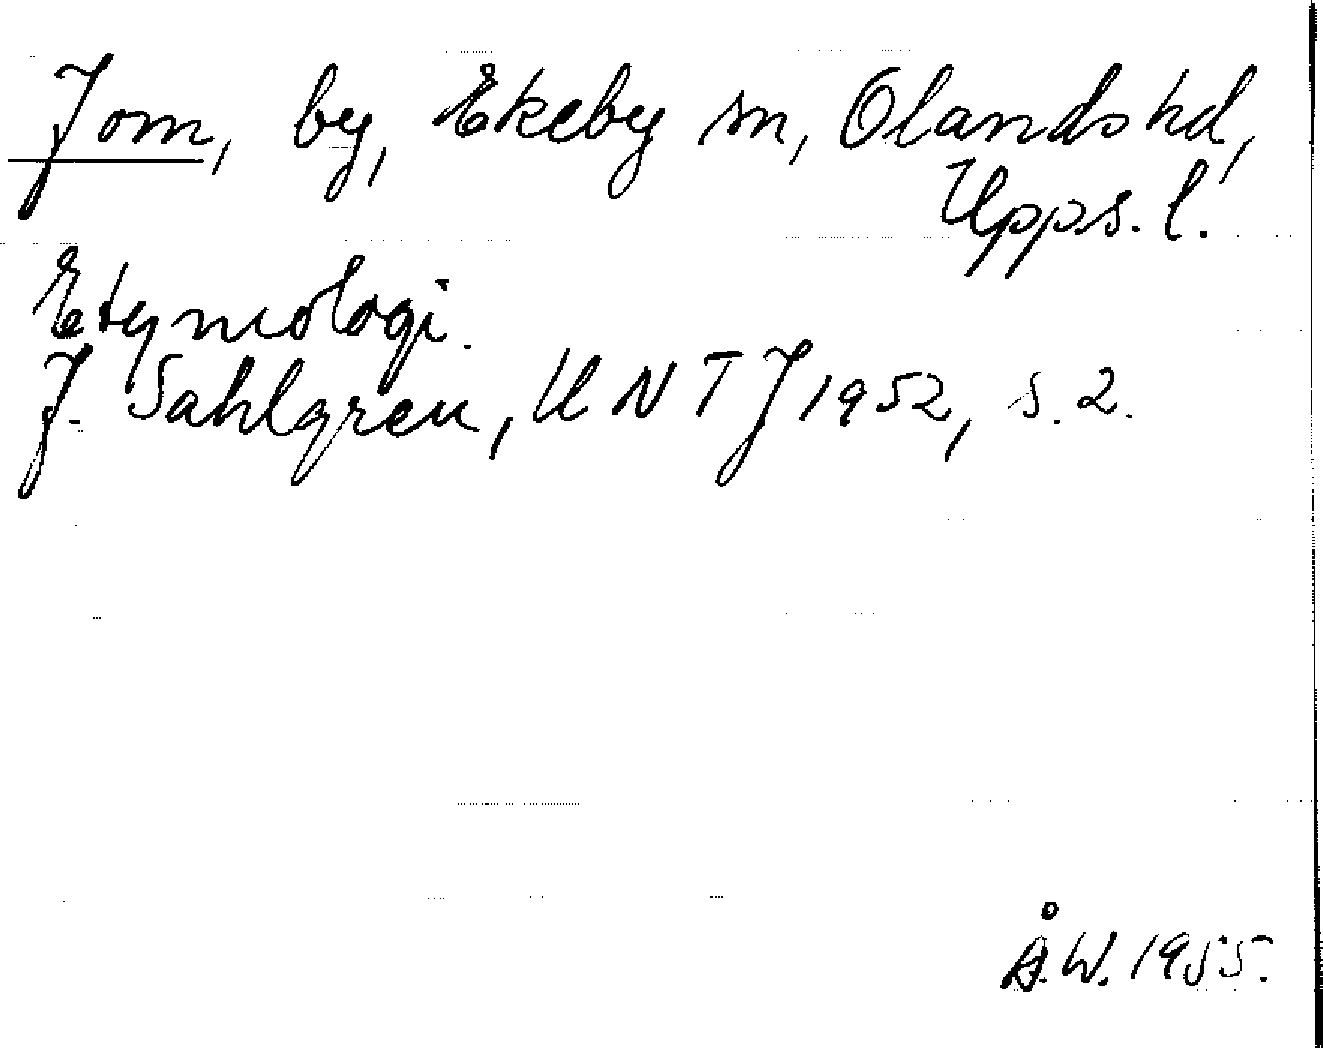 Jom, by, Ekeby sn, Olands hd,
Upps. l.
Etymologi.
J. Sahlgren, UNTJ 1952, s. 2.
Å.W. 1955.